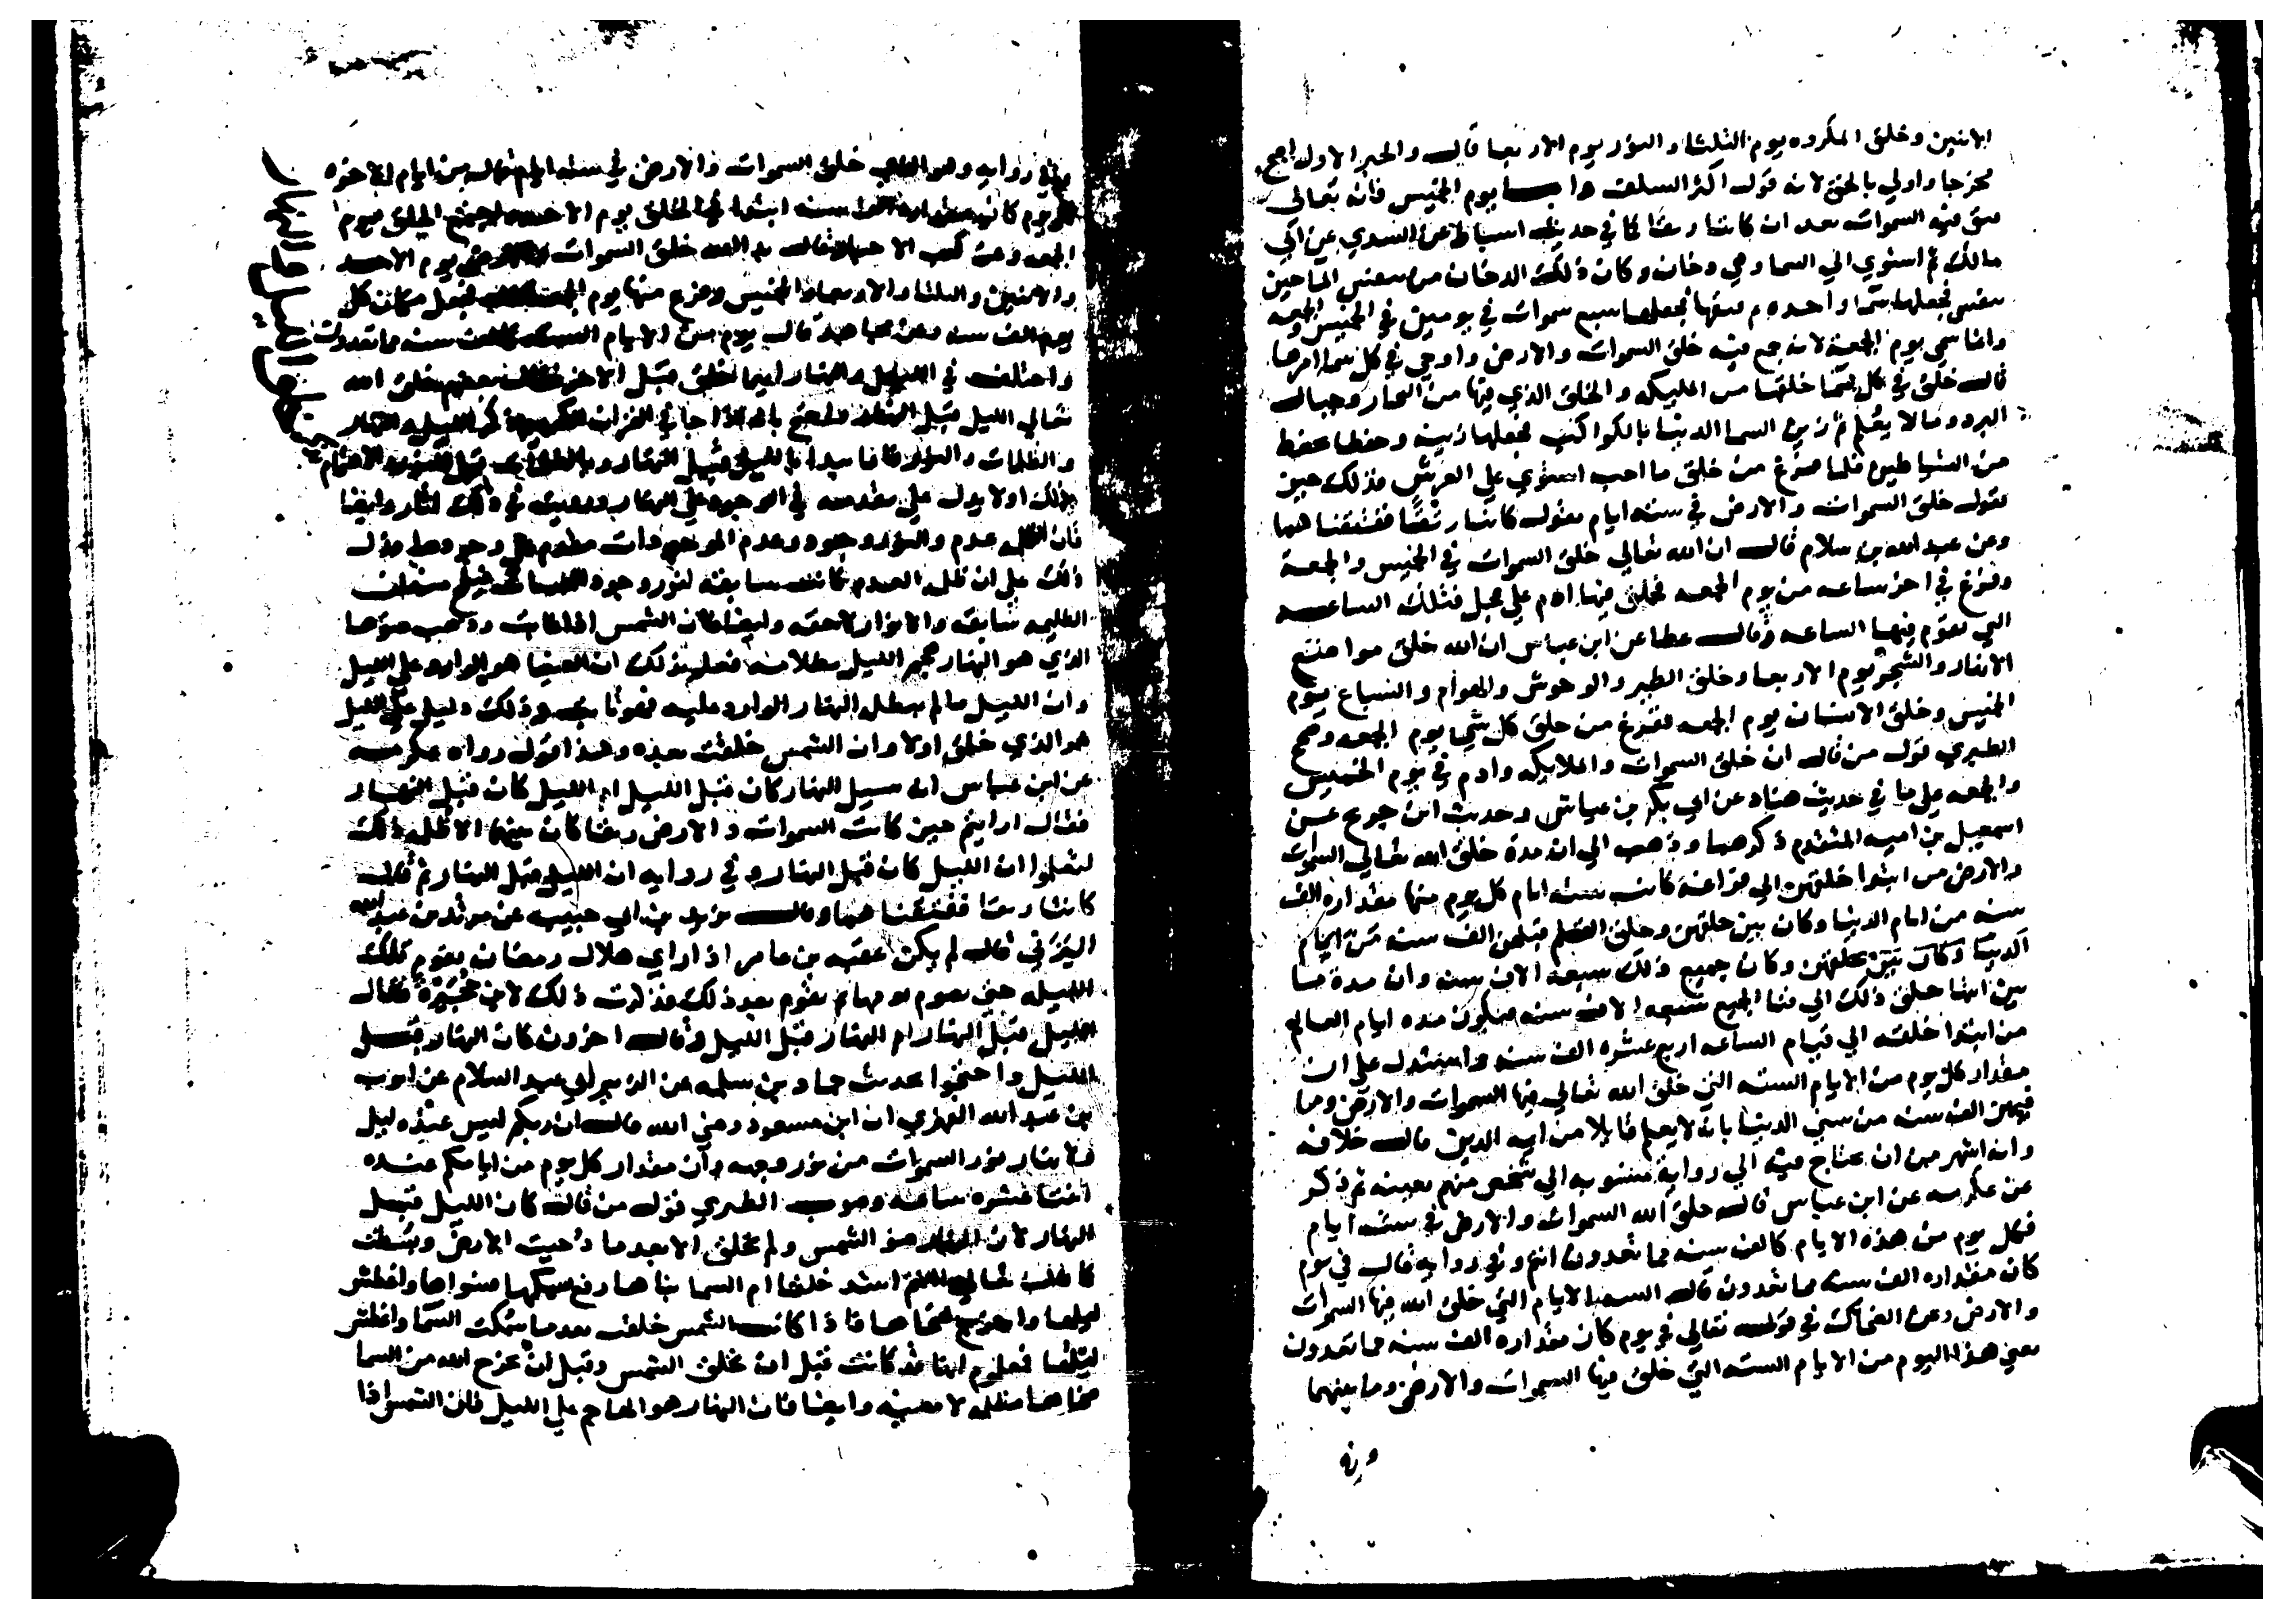 الاثنين وخلق المكروه يوم الثلثا والنور يوم الاربعا قال والخبر الاول اصح
مخرجا واولي بالحق لانه قول اكثر السلف واما يوم الخميس فانه تعالى
فتق فيه السموات بعد ان كانتا رتقا كما في حديث اسباط عن السدي عن ابي
مالك ثم استوي الي السما وهي دخان وكان ذلك الدخان من تنفس الما حين
تنفس فجعلها سما واحده ثم فتقها فجعلها سبع سموات في يومين في الخميس والجمعه
وانما سمي يوم الجمعة لانه جمع فيه خلق السموات والارض واوحي في كل سما امرها
قال خلق في كل سما خلقها من المليكه والخلق الذي فيها من البحار وجبال
البرد وما لا يعلم ثم زين السما الدنيا بالكواكب فجعلها زينه وحفظا تحفظ
من الشياطين فلما فرغ من خلق ما احب استوي علي العرش فذلك حين
يقول خلق السموات والارض في سته ايام يقول كانتا رتقا ففتقناهما
وعن عبد الله بن سلام قال ان الله تعالي خلق السموات في الخميس والجمعة
وفرغ في اخر ساعه من يوم الجمعه فخلق فيها ادم علي عجل فتلك الساعه
التي تقوم فيها الساعه وقال عطا عن ابن عباس ان الله خلق مواضع
الانهار والشجر يوم الاربعا وخلق الطير والوحوش والهوام والسباع يوم
الخميس وخلق الانسان يوم الجمعه ففرغ من خلق كل شي يوم الجمعه وصحح
الطبري قول من قال ان خلق السموات والملايكه وادم في يوم الخميس
والجمعه علي ما في حديث هناد عن ابي بكر بن عياش وحديث ابن جريج عن
اسمعيل بن اميه المتقدم ذكرهما وذهب الي ان مدة خلق الله تعالي السموات
والارض من ابتدا خلقهن الي فراغه كانت سته ايام كل يوم منها مقداره الف
سنه من ايام الدنيا وكان بين خلقهن وخلق القلم قبلهن الف سنه من ايام
الدنيا وكان جميع ذلك سبعه الاف سنه وان مدة ما
بين انتها خلق ذلك الي فنا الجميع سبعه الاف سنه فيكون مده ايام العالم
من ابتدا خلقه الي قيام الساعه اربع عشره الف سنه واستدل علي ان
مقدار كل يوم من الايام السته التي خلق الله تعالي فيها السموات والارض وما
فيهن الف سنه من سني الدنيا بانه لا يعلم قايلا من ايمه الدين قال خلافه
وانه اشهر من ان يحتاج فيه الي رواية منسوبه الي شخص منهم بعينه ثم ذكر
عن عكرمه عن ابن عباس قال خلق الله السموات والارض في سته ايام
فكل يوم من هذه الايام كالف سنه مما تعدون انتم وفي روايه قال في يوم
كان مقداره الف سنه مما تعدون قال السته الايام التي خلق الله فيها السموات
والارض وعن الضحاك في قوله تعالي في يوم كان مقداره الف سنه مما تعدون
يعني هذا اليوم من الايام السته التي خلق فيها السموات والارض وما بينهما
وفي روايه وهو الذي خلق السموات والارض في سته ايام قال من ايام الاخره
كل يوم كان مقداره الف سنه ابتدا في الخلق يوم الاحد واجتمع الخلق يوم
الجمعه وعن كعب الاحبار قال بدا الله خلق السموات والارض يوم الاحد
والاثنين والثلثا والاربعا والخميس وفرغ منها يوم الجمعه فجعل مكان كل
يوم الف سنه وعن مجاهد قال يوم من الايام السته كالف سنه مما تعدون
واختلف في الليل والنهار ايهما خلق قبل الاخر فقال بعضهم خلق الله
تعالي الليل قبل النهار واحتج بانه اذا جا في القران ذكر الليل والنهار
والظلمات والنور فانما يبدا بالليل قبل النهار وبالظلمات قبل النور
بذلك اولا يدل علي تقدمه في الوجود علي النهار ورويت في ذلك اثار وايضا
فان الظل عدم والنور وجود وعدم الموجودات
ذلك علي ان ظل العدم كانت سابقه لنور وجود
الظلمه سابقه والانوار لاحقه وايضا فان الشمس اذا غابت وذهب ضوها
الذي هو النهار هجم الليل بظلامه فعلم بذلك ان الضيا هو الوارد علي الليل
وان الليل ما لم يبطل النهار الوارد عليه وذلك دليل علي الليل
هو الذي خلق اولا وان الشمس خلقت بعده وهذا القول رواه عكرمه
عن ابن عباس انه سيل النهار كان قبل الليل ام الليل كان قبل النهار
فقال ارايتم حين كانت السموات والارض رتقا كان بينهما الا ظله ذلك
لتعلموا ان الليل كان قبل النهار وفي روايه ان الليل قبل النهار ثم قال
كانتا رتقا ففتقناهما وقال يزيد بن ابي حبيب عن مرثد بن عبد الله
اليزني قال لم يكن عقبه بن عامر اذا راي هلال رمضان يقوم تلك
الليله حتي يصوم يومها ثم يقوم بعد ذلك فذكرت ذلك لابن حجيرة فقال
الليل قبل النهار ام النهار قبل الليل وقال اخرون كان النهار قبل
الليل واحتجوا بحديث حماد بن سلمه عن الزبير ابي عبد السلام عن ايوب
بن عبد الله الفهري ان ابن مسعود رضي الله قال ان ربكم ليس عنده ليل
ولا نهار نور السموات من نور وجهه وان مقدار كل يوم من ايامكم عنده
اثنتا عشره ساعه وصوب الطبري قول من قال كان الليل قبل
النهار لان النهار ضو الشمس ولم تخلق الا بعد ما دحيت الارض وبسطت
كما قال تعالي اانتم اشد خلقا ام السما بناها رفع سمكها فسواها واغطش
ليلها واخرج ضحاها فاذا كانت الشمس خلقت بعد ما سمكت السما واغطش
ليلها فمعلوم انها قد كانت قبل ان تخلق الشمس وقبل ان يخرج الله من السما
ضحاها مظلمه لا مضيه وايضا فان النهار هو الهاجم علي الليل فان الشمس اذا